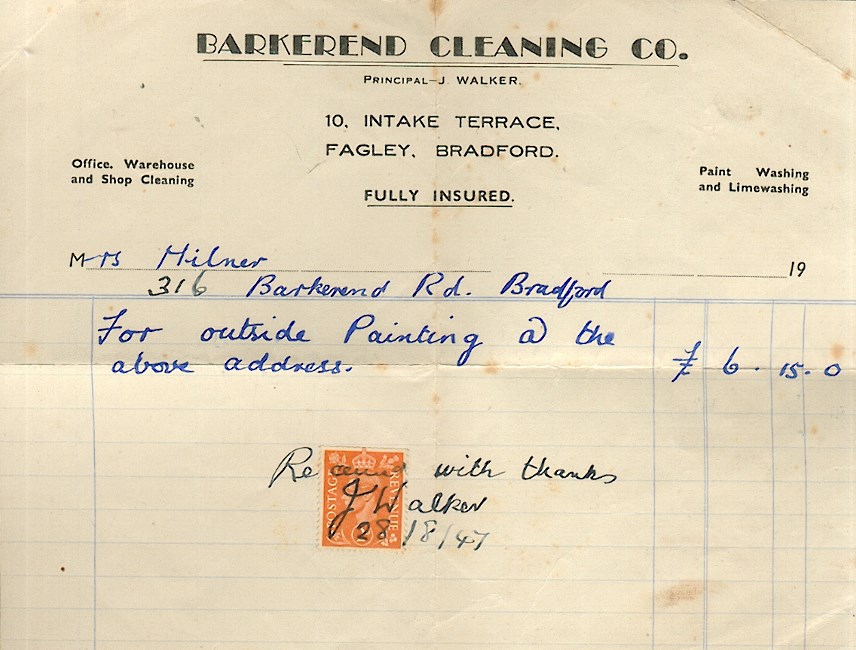 BARKEREND CLEANING CO.
PRINCIPAL—J. WALKER.
10, INTAKE TERRACE,
FAGLEY, BRADFORD.
Office, Warehouse
and Shop Cleaning
Paint Washing
and Limewashing
FULLY INSURED.
Mrs Milner
19
316 Barkerend Rd. Bradford
For outside Painting @ the
above address. £ 6. 15. 0
Received with thanks
POSTAGE REVENUE
J Walker
28/8/47